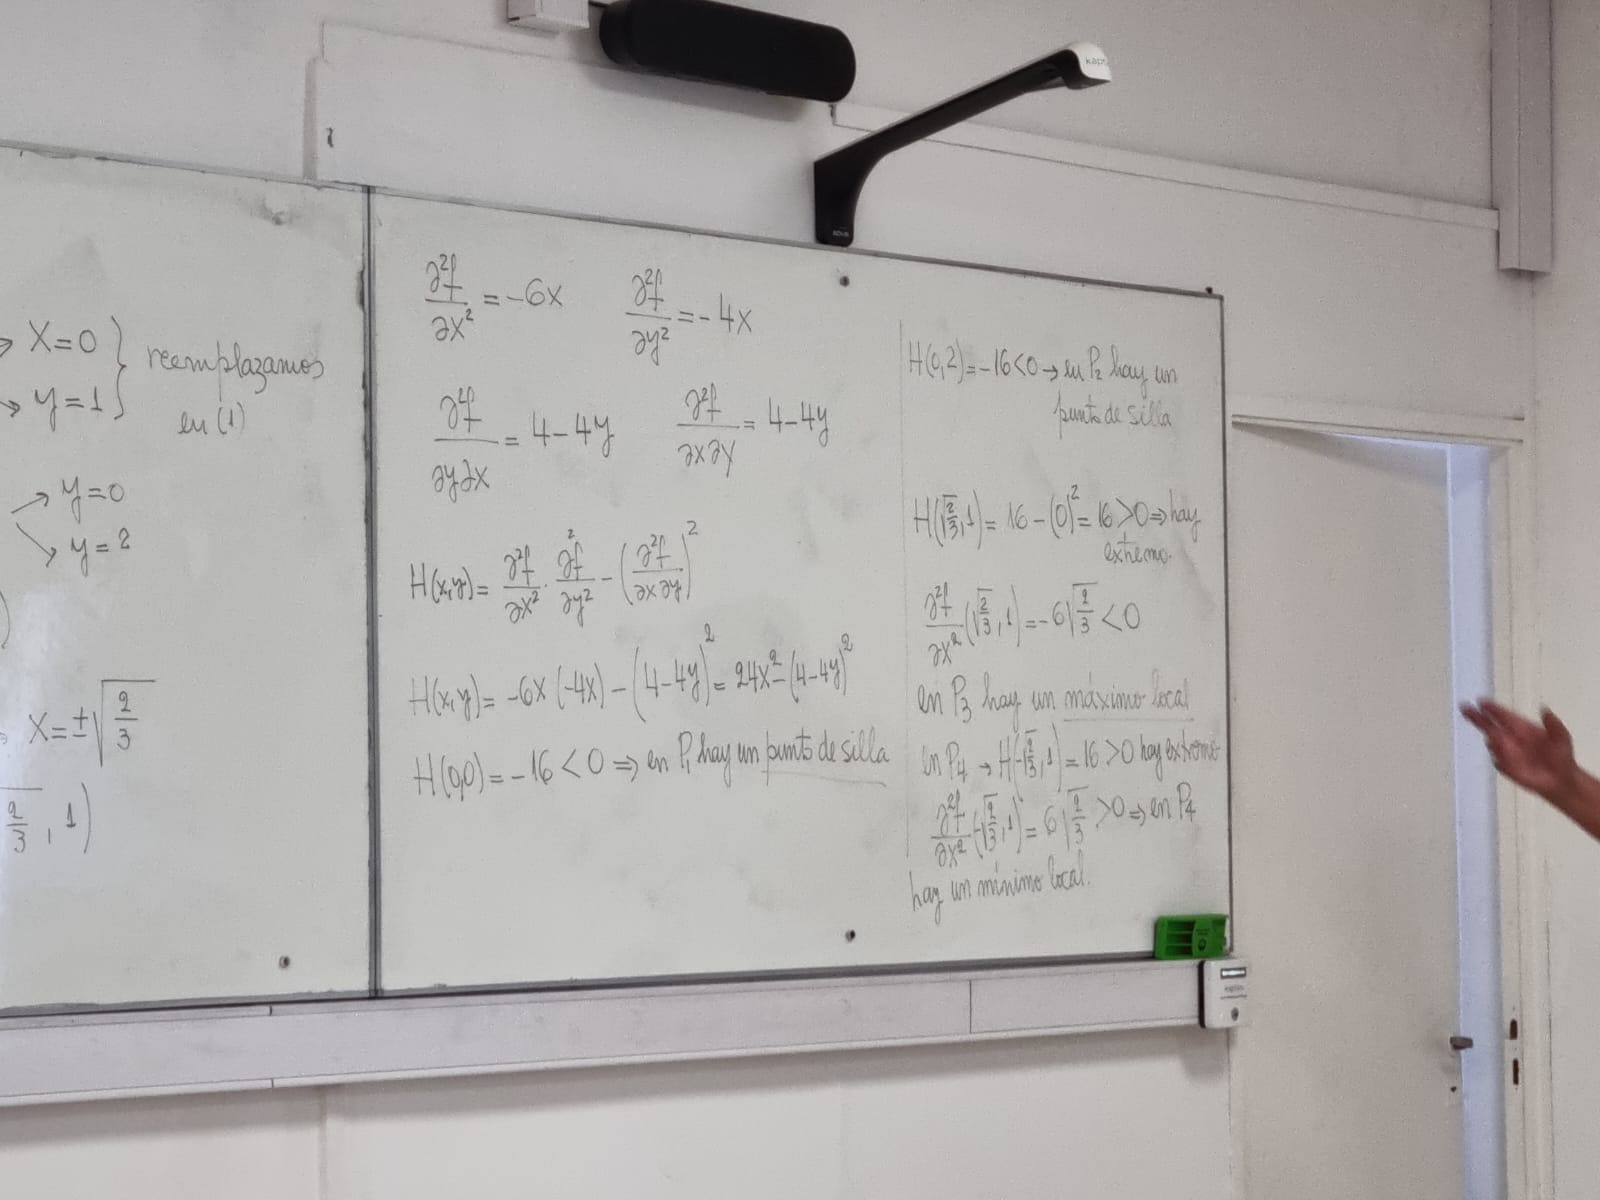 → X=0
→ y=1 } reemplazamos
en (1)
→ y=0
→ y=2
X=±√(2/3)
2/3, 1)
∂²f/∂x² = -6x   ∂²f/∂y² = -4x
∂²f/∂y∂x = 4-4y   ∂²f/∂x∂y = 4-4y
H(x,y)= ∂²f/∂x² · ∂²f/∂y² - (∂²f/∂x∂y)²
H(x,y)= -6x(-4x) - (4-4y)² = 24x² - (4-4y)²
H(0,0)= -16 < 0 ⇒ en P₁ hay un punto de silla
H(0,2)= -16<0 → en P₂ hay un
punto de silla
H(√(2/3),1)= 16 - (0)² = 16 >0 ⇒ hay
extremo.
∂²f/∂x² (√(2/3), 1) = -6√(2/3) < 0
en P₃ hay un máximo local
en P₄ → H(-√(2/3),1) = 16 >0 hay extremo
∂²f/∂x² (-√(2/3),1) = 6√(2/3) >0 ⇒ en P₄
hay un mínimo local.